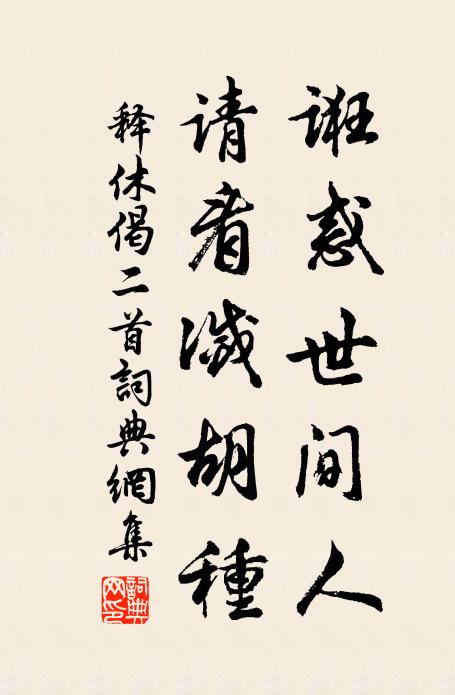 诳惑世间人
请看滅胡種
释休偈二首詞典網集
詞典网印